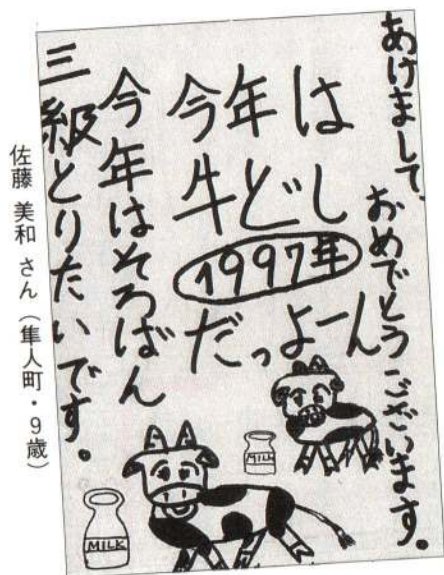 あけまして、おめでとうございます。
今年は
牛どし
1997年
だっよーん
今年はそろばん
三級とりたいです。
MILK
MILK
佐藤 美和 さん（隼人町・9歳）